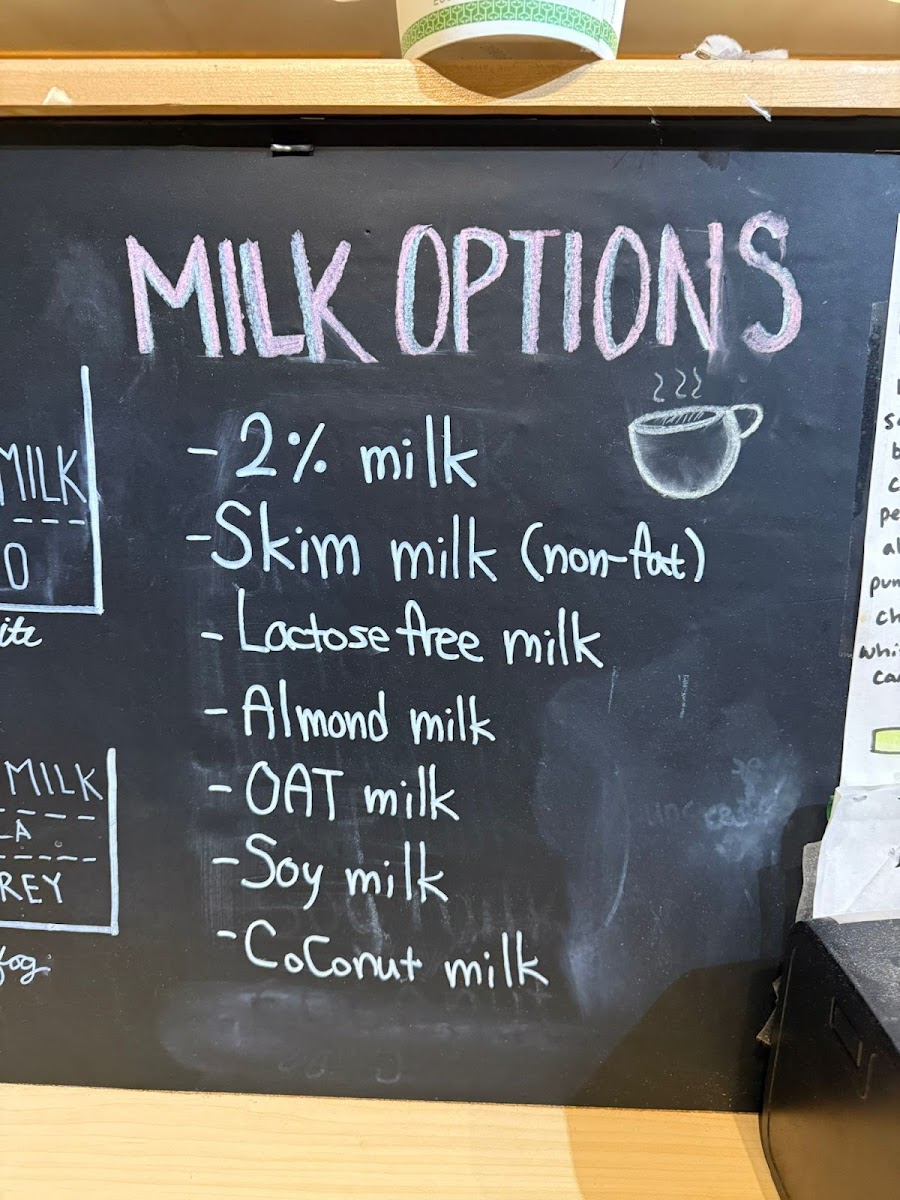 MILK OPTIONS
- 2% milk
- Skim milk (non-fat)
- Lactose free milk
- Almond milk
- OAT milk
- Soy milk
- CoConut milk
MILK
O
MILK
LA
REY
fog